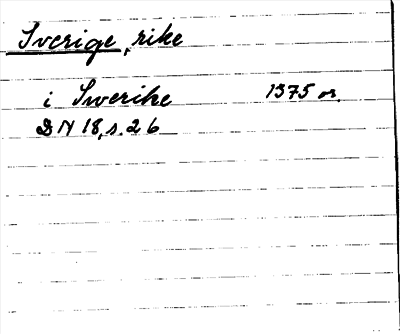 Sverige, rike
i Swerike 1375 or.
DN 18, s. 26